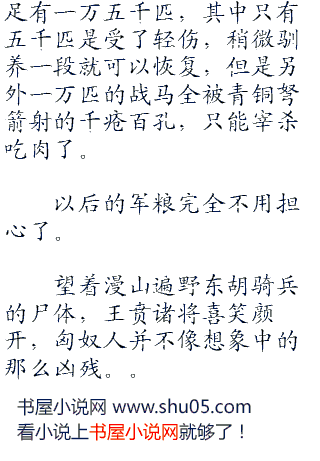 足有一万五千匹，其中只有
五千匹是受了轻伤，稍微驯
养一段就可以恢复，但是另
外一万匹的战马全被青铜弩
箭射的千疮百孔，只能宰杀
吃肉了。
以后的军粮完全不用担
心了。
望着漫山遍野东胡骑兵
的尸体，王贲诸将喜笑颜
开，匈奴人并不像想象中的
那么凶残。。
书屋小说网 www.shu05.com
看小说上书屋小说网就够了！